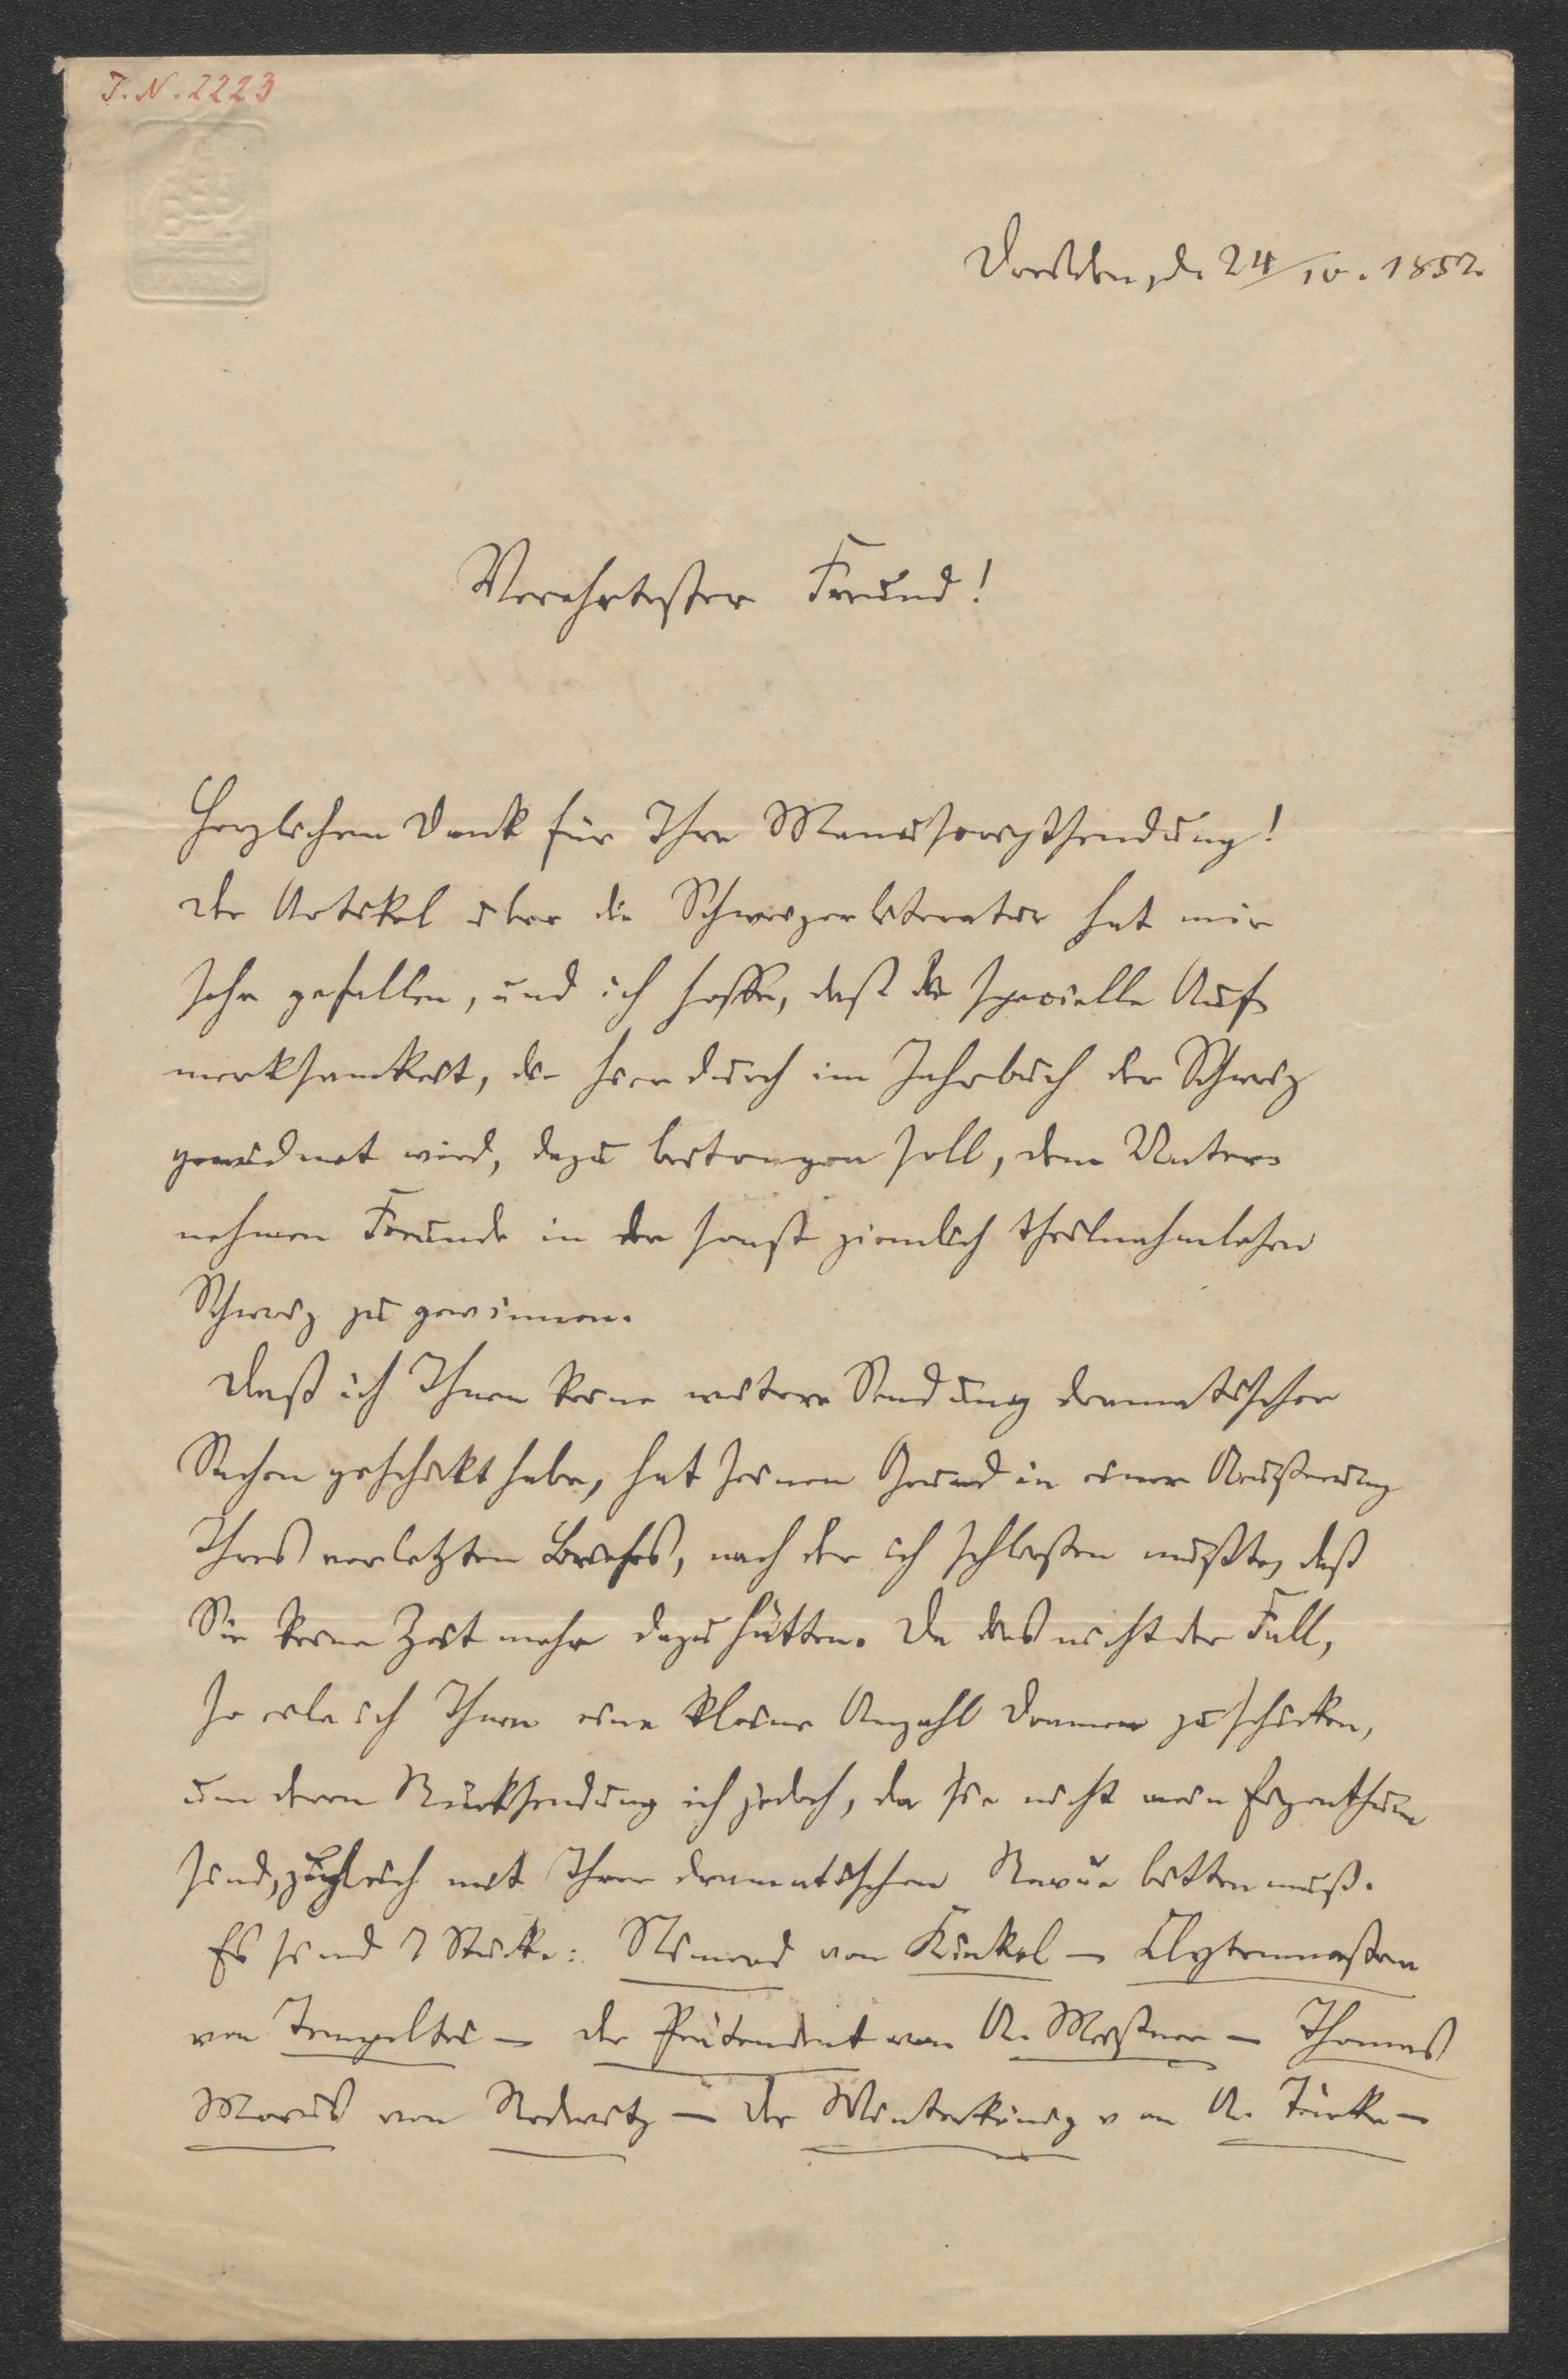 I. N. 2223
Dresden, d. 24/10. 1857.
Verehrtester Freund!
Herzlichen Dank für Ihre Manuscriptsendung!
Der Artikel über die Schweizerliteratur hat mir
sehr gefallen, und ich hoffe, daß die specielle Auf-
merksamkeit, die hierdurch im Jahrbuch der Schweiz
gewidmet wird, dazu beitragen soll, dem Unter-
nehmen Freunde in der sonst ziemlich theilnahmlosen
Schweiz zu gewinnen.
Daß ich Ihnen keine weitere Sendung dramatischer
Sachen geschickt habe, hat seinen Grund in einer Aeußerung
Ihres vorletzten Briefes, nach der ich schließen mußte, daß
Sie keine Zeit mehr dazu hätten. Da dies nicht der Fall,
so eile ich Ihnen eine kleine Anzahl Dramen zu schicken,
um deren Rücksendung ich jedoch, da sie nicht mein Eigenthum
sind, zugleich mit Ihrer dramatischen Revue bitten muß.
Es sind 7 Stücke: Nimrod von Kinkel — Klytemnestra
von Tempeltei — der Prätendent von A. Meißner — Thomas
Morus von Redwitz — der Winterkönig von A. Türcke —